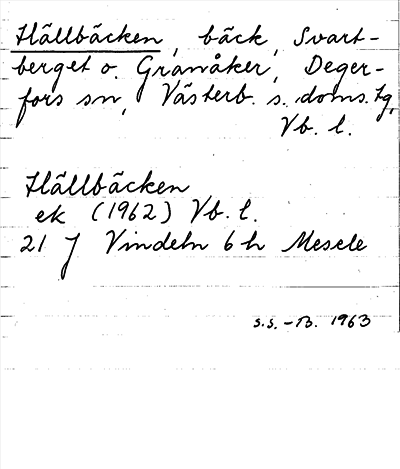 Hällbäcken, bäck, Svart-
berget o. Granåker, Deger-
fors sn, Västerb. s. doms. tg,
Vb. l.
Hällbäcken
ek (1962) Vb. l.
21 J Vindeln 6 h Mesele
S.S. - B. 1963